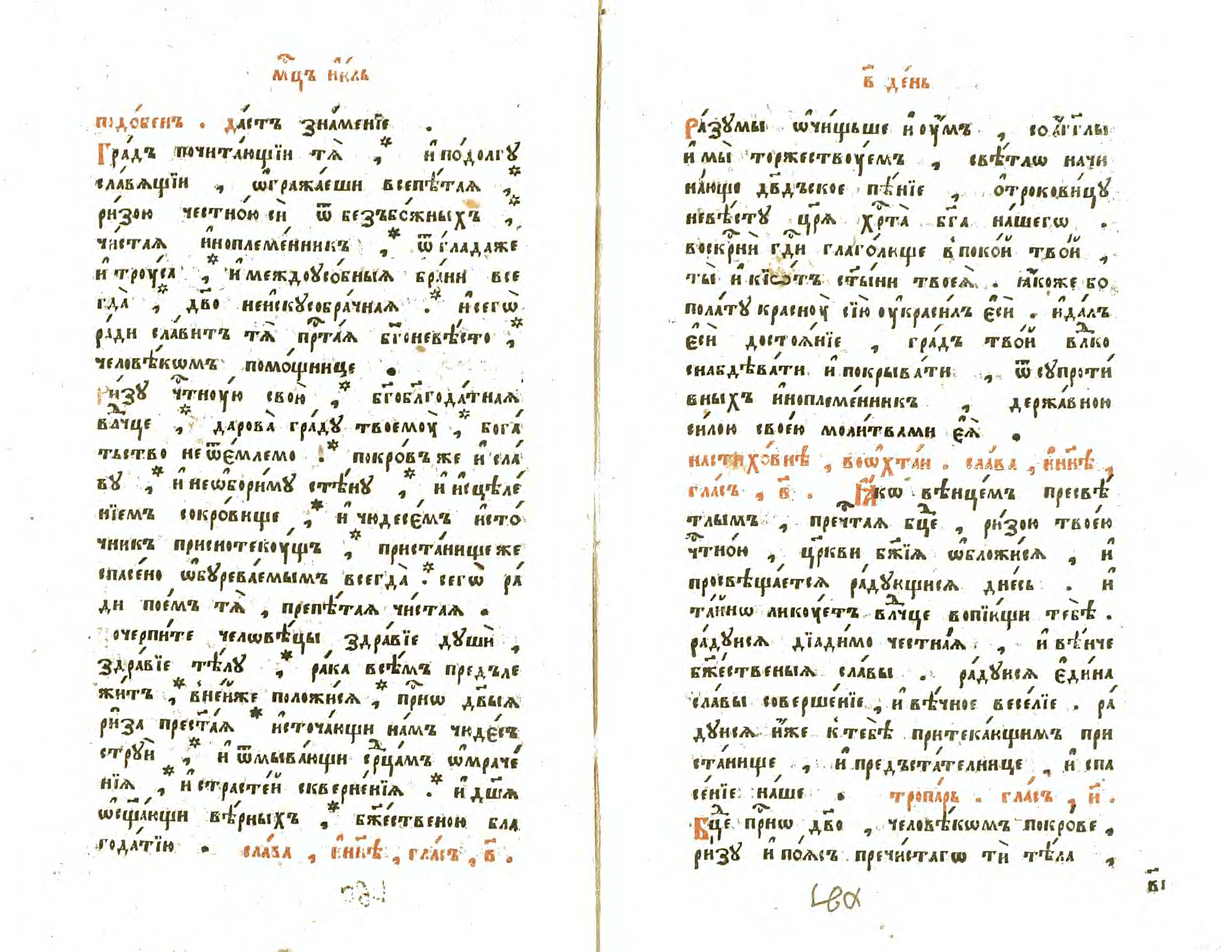 мц҃ъ ию́ль
подо́бенъ . да́стъ зна́менїе .
Гра́дъ почита́ющїи тѧ̀ ,* и҆ подо́лгу
сла́вѧщїи , ѡ҆гража́еши всепѣ́таѧ ,*
ри́зою честно́ю сѝ ѿ безъбо́жныхъ ,*
чи́стаѧ и҆ноплеме́нникъ ,* ѿ гла́да же
и҆ тру́са ,* и҆ междоусо́бныѧ бра́ни все
гда̀ ,* дв҃о неи҆скусобра́чнаѧ .* и҆ сегѡ̀
ра́ди сла́витъ тѧ̀ прⷭ҇таѧ бг҃оневѣ́сто ,*
человѣ́кѡмъ помо́щнице .
Ри́зу чⷭ҇тну́ю свою̀ ,* бг҃обл҃года́тнаѧ
влⷣчце ,* дарова̀ гра́ду твоемоу̀ ,* бога́
тьство неѿе́млемо .* покро́въ же и҆ сла́
ву ,* и҆ неѡ҆бори́му стѣ́ну ,* и҆ и҆сцѣле́
нїемъ сокро́вище ,* и҆ чюдесе́мъ и҆сто́
чникъ приснотеку́щъ ,* приста́нище же
спасе́но ѡ҆бурева́емымъ всегда̀ .* сегѡ̀ ра́
ди пое́мъ тѧ̀ , препѣ́таѧ чи́стаѧ .
почерпи́те челѡвѣ́цы здра́вїе душѝ ,
здра́вїе тѣ́лу ,* ра́ка всѣ́мъ предъле
жи́тъ ,* в не́йже положи́сѧ ,* прⷭ҇нѡ дв҃ыѧ
ри́за престⷭ҇а́ѧ * и҆сточа́ющи на́мъ чюде́съ
струѝ ,* и҆ ѿмыва́ющи срⷣца́мъ ѡ҆мраче́
нїѧ ,* и҆ страсте́й скверне́нїѧ .* и҆ дш҃ѧ
ѡ҆сщ҃а́ющи вѣ́рныхъ ,* бж҃е́ственою бла
года́тїю . сла́ва , и҆ ны́нѣ , гла́съ , в҃ .
в҃ де́нь
Ра́зумы ѡ҆чи́щьше и҆ оу҆́мъ , со а҆́гг҃лы
и҆ мы̀ торжествоу́емъ , свѣ́тлѡ начи
на́юще дв҃дъское пѣ́нїе , ѻ҆трокови́цу
невѣ́сту цр҃ѧ̀ хрⷭ҇та̀ бг҃а на́шегѡ .
воскрⷭ҇нѝ гдⷭ҇и глаго́люще в поко́й тво́й ,
ты̀ и҆ кїѡ́тъ ст҃ы́ни твоеѧ̀ . ꙗ҆́коже бо
пола́ту красноу̀ сїю̀ оу҆краси́лъ є҆сѝ . и҆ да́лъ
є҆сѝ достоѧ́нїе , гра́дъ тво́й влⷣко
снабдѣва́ти и҆ покрыва́ти , ѿ супроти́
вныхъ и҆ноплеме́нникъ , держа́вною
си́лою свое́ю моли́твами є҆ѧ̀ .
на стихо́внѣ , во ѻ҆хта́и . сла́ва , и҆ ны́нѣ ,
гла́съ , в҃ . Ꙗ҆́кѡ вѣнце́мъ пресвѣ́
тлымъ , преч҃таѧ бц҃е , ри́зою твое́ю
чⷭ҇тно́ю , цр҃кви бж҃їѧ ѡ҆бложи́сѧ , и҆
просвѣща́етсѧ ра́дующисѧ дне́сь . и҆
та́йнѡ ликоу́етъ влⷣчце вопїю́щи тебѣ̀ .
ра́дуисѧ дїади́мо честна́ѧ , и҆ вѣ́нче
бж҃е́ственыѧ сла́вы . ра́дуисѧ є҆ди́на
сла́вы соверше́нїе , и҆ вѣ́чное весе́лїе . ра́
дуисѧ и҆́же к тебѣ̀ притека́ющимъ при
ста́нище , и҆ предъста́телнице , и҆ спа
се́нїе на́ше . тропа́рь . гла́съ , и҃ .
Бц҃е прⷭ҇нѡ дв҃о , человѣ́кѡмъ покро́ве ,
ри́зу и҆ по́ѧсъ пречи́стагѡ тѝ тѣ́ла ,
в҃і